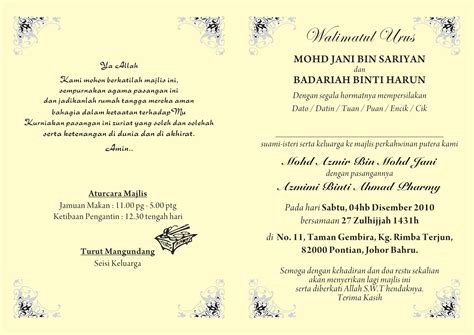 Ya Allah
Kami mohon berkatilah majlis ini,
sempurnakan agama pasangan ini
dan jadikanlah rumah tangga mereka aman
bahagia dalam ketaatan terhadapMu
Kurniakan pasangan ini zuriat yang soleh dan solehah
serta ketenangan di dunia dan di akhirat.
Amin..
Aturcara Majlis
Jamuan Makan : 11.00 pg - 5.00 ptg
Ketibaan Pengantin : 12.30 tengah hari
Turut Mangundang
Seisi Keluarga
Walimatul Urus
MOHD JANI BIN SARIYAN
dan
BADARIAH BINTI HARUN
Dengan segala hormatnya mempersilakan
Dato / Datin / Tuan / Puan / Encik / Cik
suami-isteri serta keluarga ke majlis perkahwinan putera kami
Mohd Azmir Bin Mohd Jani
dengan pasangannya
Azmimi Binti Ahmad Pharmy
Pada hari Sabtu, 04hb Disember 2010
bersamaan 27 Zulhijjah 1431h
di No. 11, Taman Gembira, Kg. Rimba Terjun,
82000 Pontian, Johor Bahru.
Semoga dengan kehadiran dan doa restu sekalian
akan menyerikan lagi majlis ini
serta diberkati Allah S.W.T hendaknya.
Terima Kasih